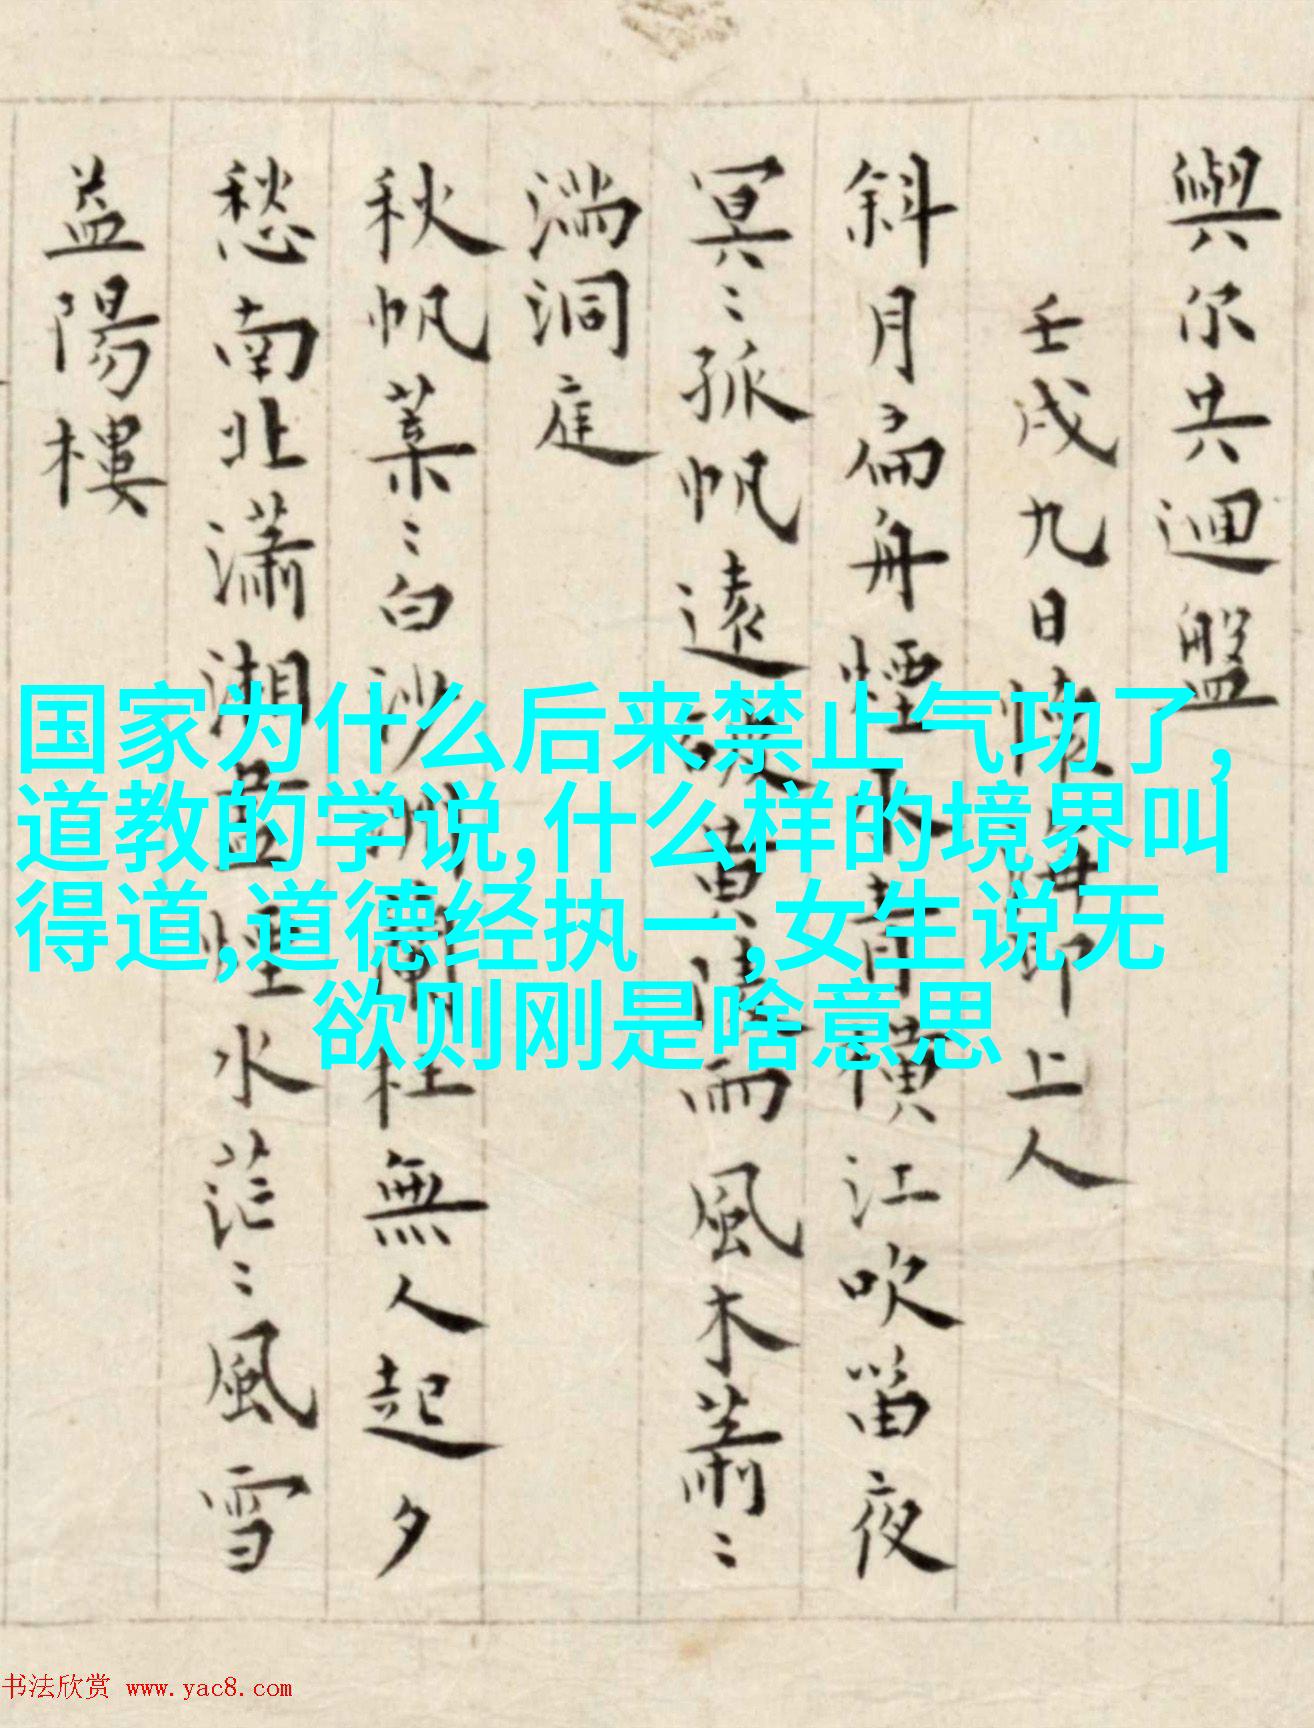 與尔共迴盤
壬戌九日懷海印上人
斜月扁舟煙
橫江吹笛夜
冥〻孤帆遠
黄陵雨風木蕭〻
湍洞庭
秋帆葉〻白沙
無人起夕
愁南北瀟湖
水茫〻風雪
益陽樓
国家为什么后来禁止气功了,
道教的学说,什么样的境界叫
得道,道德经执一,女生说无
欲则刚是啥意思
书法欣赏 www.yac8.com